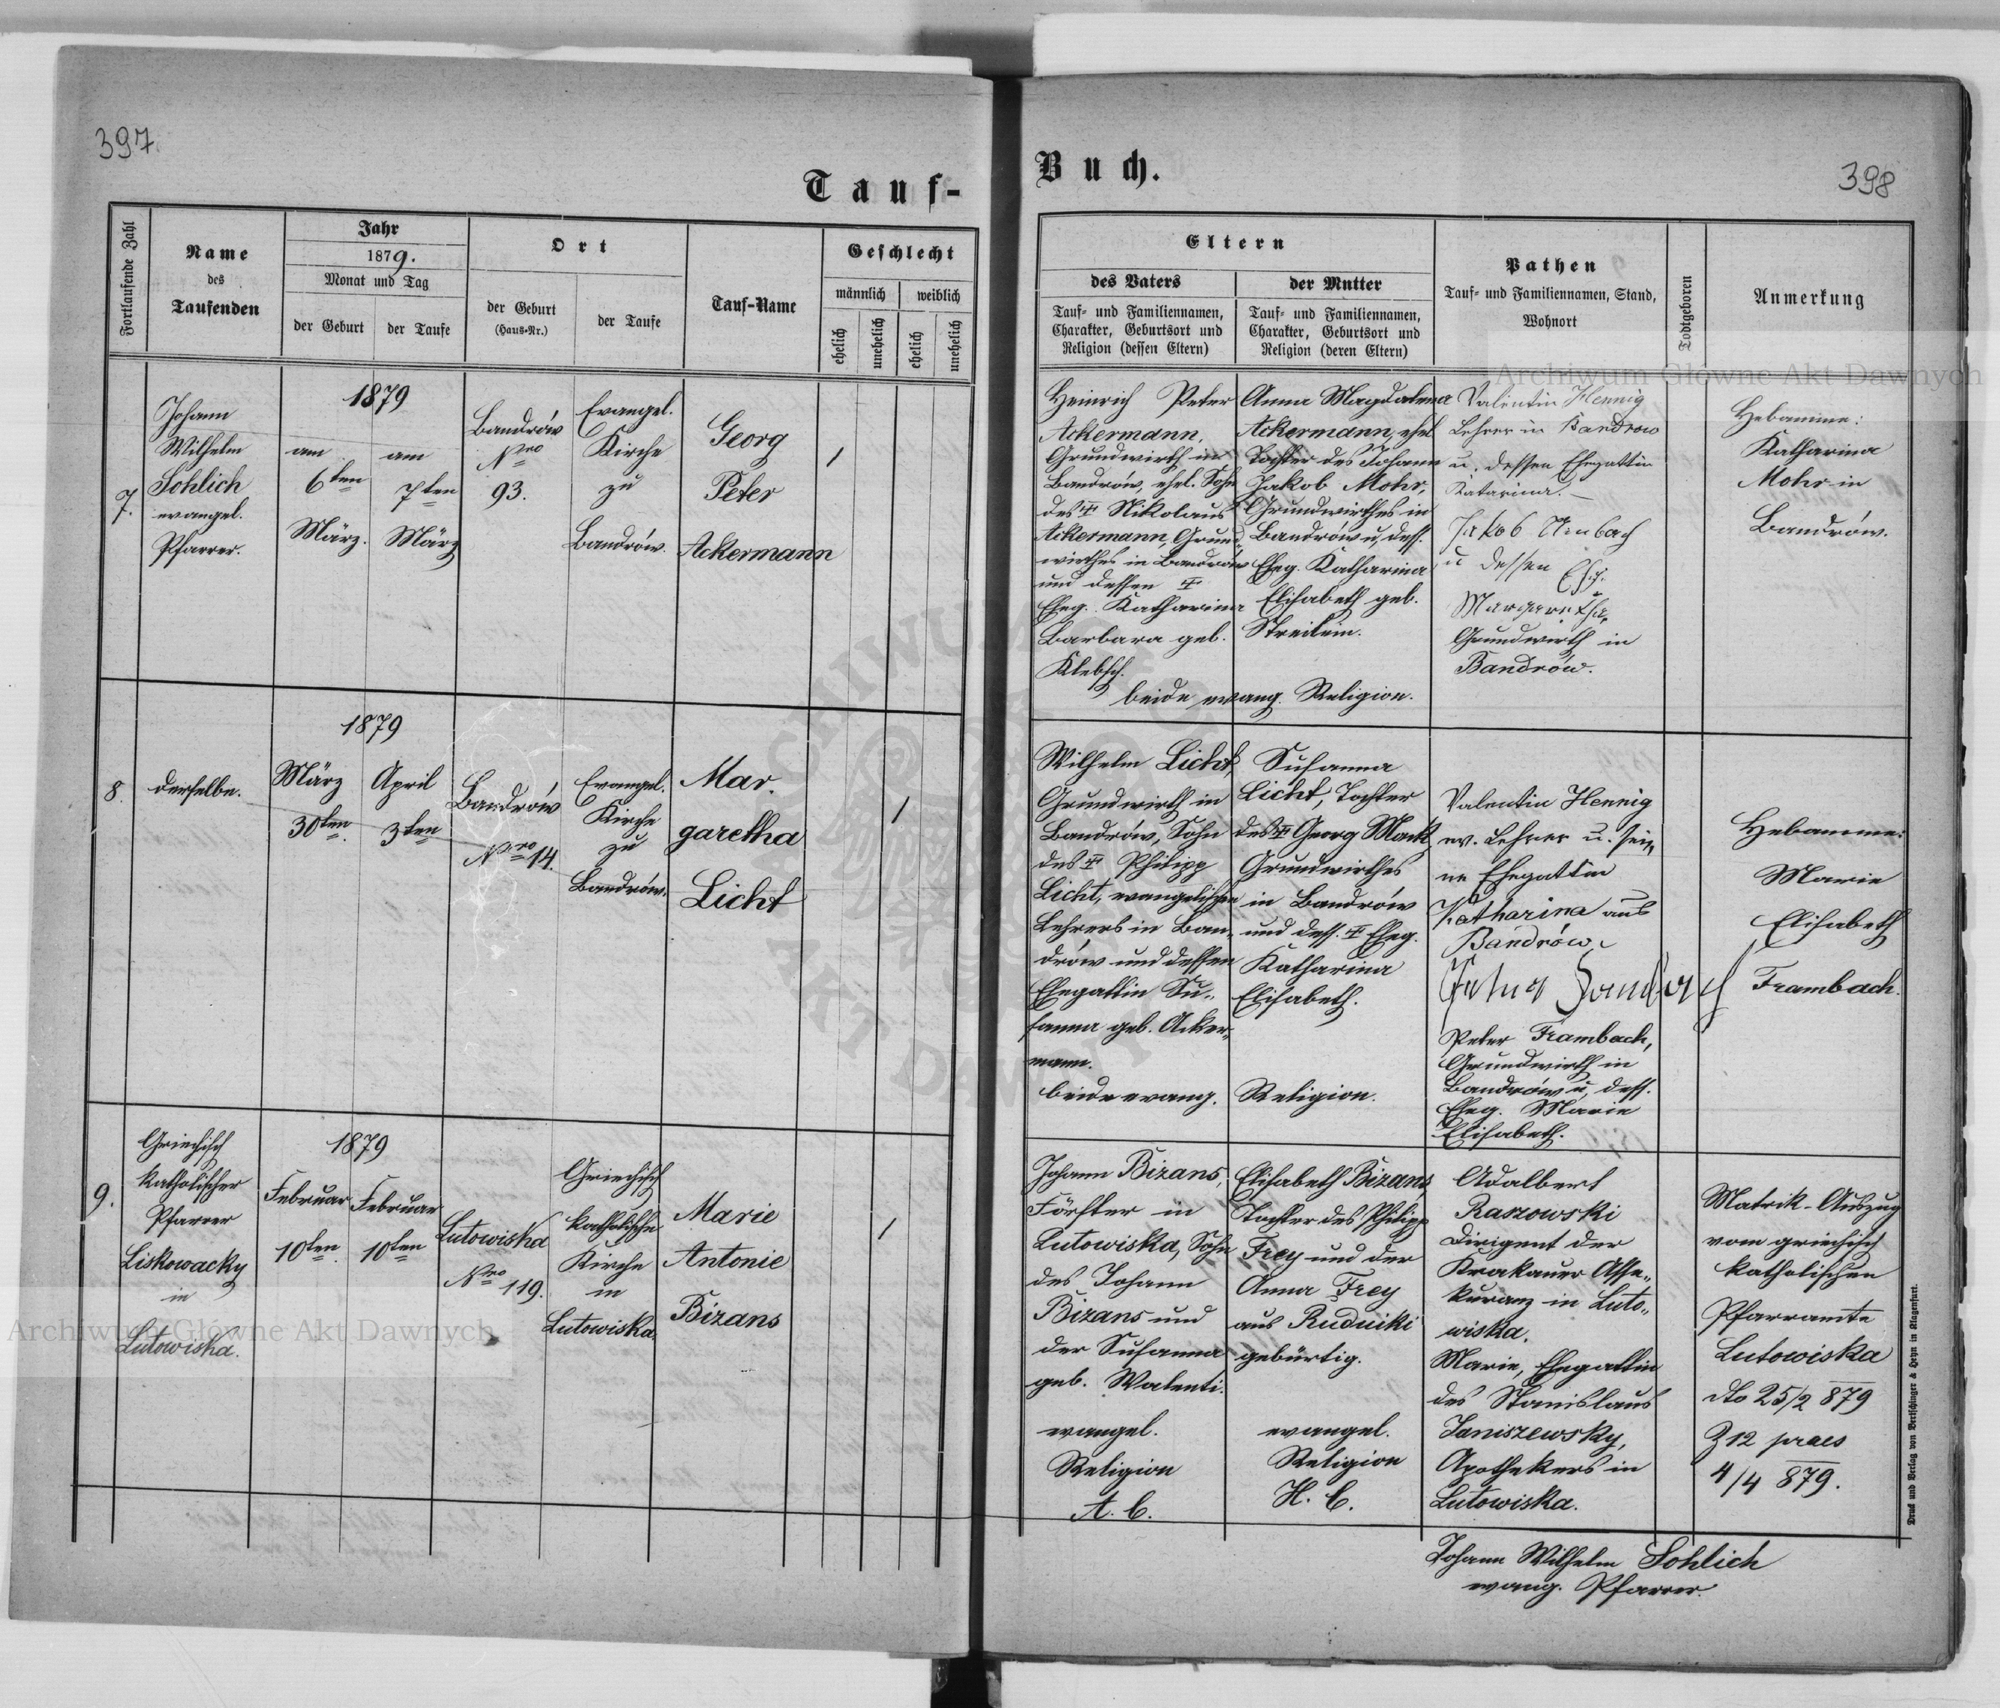 397
398
Tauf-
Buch.
Fortlaufende Zahl
Name
des
Taufenden
Jahr
1879.
Monat und Tag
der Geburt
der Taufe
Ort
der Geburt
(Haus-Nr.)
der Taufe
Tauf-Name
Geschlecht
männlich
weiblich
ehelich
unehelich
ehelich
unehelich
Eltern
des Vaters
Tauf- und Familiennamen,
Charakter, Geburtsort und
Religion (dessen Eltern)
der Mutter
Tauf- und Familiennamen,
Charakter, Geburtsort und
Religion (deren Eltern)
Pathen
Tauf- und Familiennamen, Stand,
Wohnort
Todtgeboren
Anmerkung
7.
Johann
Wilhelm
Sohlich
evangel.
Pfarrer.
1879
am
6ten
März.
am
7ten
März
Bandrów
Nro
93.
Evangel.
Kirche
zu
Bandrów.
Georg
Peter
Ackermann
/
Heinrich Peter
Ackermann,
Grundwirth in
Bandrów, ehel. Sohn
des Nikolaus
Ackermann, Grund-
wirthes in Bandrów
und dessen
Eheg. Katharina
Barbara geb.
Klebsch.
Anna Magdalena
Ackermann, ehel
Tochter des Johann
Jakob Mohr,
Grundwirthes in
Bandrów u. dess.
Eheg. Katharina
Elisabeth geb.
Streilein.
beide evang. Religion.
Valentin Hennig
Lehrer in Bandrow
u. dessen Ehegattin
Katarina. —
Jakob
u dessen
Margaretha,
Grundwirth in
Bandrów.
Hebamme:
Katharina
Mohr in
Bandrów.
8.
derselbe.
1879
März
30ten.
April
3ten
Bandrów
Nro 14.
Evangel.
Kirche
zu
Bandrów.
Mar.
garetha
Licht
/
Wilhelm Licht,
Grundwirth in
Bandrów, Sohn
des Philipp
Licht, evangelischen
Lehrers in Ban-
drów und dessen
Ehegattin Su-
sanna geb. Acker-
mann.
beide evang.
Susanna
Licht, Tochter
des Georg
Grundwirthes
in Bandrów
und dess. Eheg.
Katharina
Elisabeth.
Religion.
Valentin Hennig
ev. Lehrer u. sei-
ne Ehegattin
Katharina aus
Bandrów.
Peter Frambach,
Grundwirth in
Bandrów u. dess.
Eheg. Marie
Elisabeth.
Hebamme:
Marie
Elisabeth
Frambach.
9.
Griechisch
katholischer
Pfarrer
Liskowacky
in
Lutowiska.
1879
Februar
10ten.
Februar
10ten
Lutowiska
Nro 119.
Griechisch
katholische
Kirche
in
Lutowiska
Marie
Antonie
Bizans
/
Johann Bizans,
Förster in
Lutowiska, Sohn
des Johann
Bizans und
der Susanna
geb. Walenti.
evangel.
Religion
A. C.
Elisabeth Bizans
Tochter des Philipp
Frey und der
Anna Frey
aus Rudniki
gebürtig.
evangel.
Religion
H. C.
Adalbert
Raszowski
Dirigent der
Krakauer Asse-
kuranz in Luto-
wiska.
Marie, Ehegattin
des Stanislaus
Janiszewsky,
Apothekers in
Lutowiska.
Matrik-Auszug
vom griechisch
katholischen
Pfarramte
Lutowiska
dto 25/2 879
Z 12 praes
4/4 879.
Johann Wilhelm Sohlich
evang. Pfarrer.
Druck und Verlag von Bertschinger & Heyn in Klagenfurt.
Archiwum Główne Akt Dawnych
Archiwum Główne Akt Dawnych